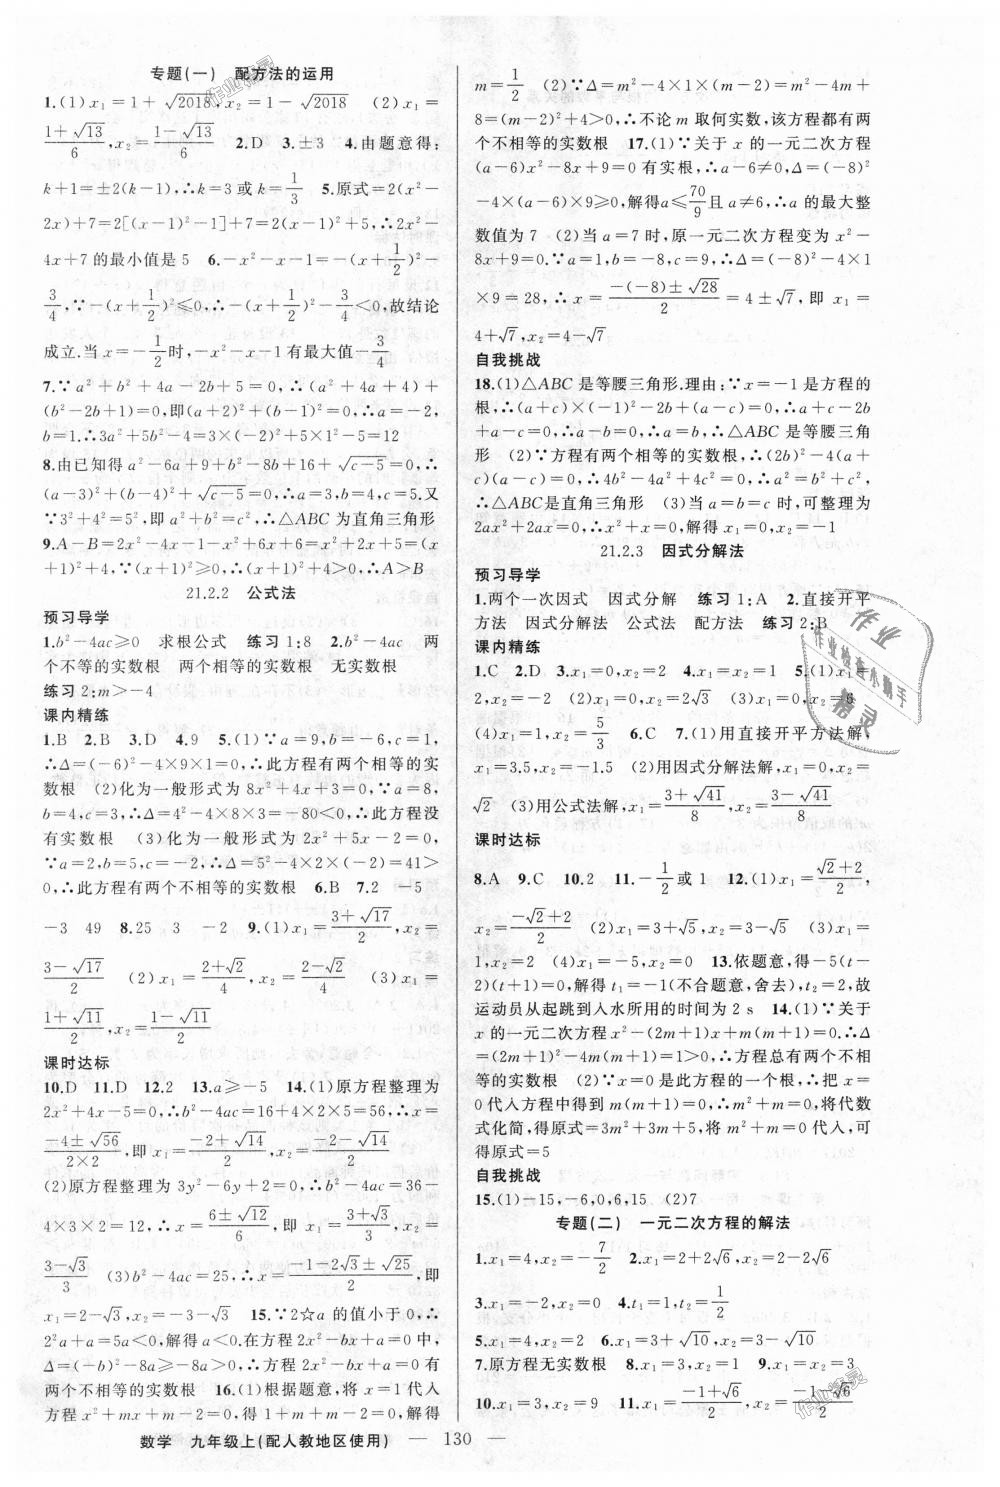 专题(一)　配方法的运用
1.(1)x₁=1+√2018,x₂=1-√2018　(2)x₁=
(1+√13)/6,x₂=(1-√13)/6　2.D　3.±3　4.由题意得:
k+1=±2(k-1),∴k=3或k=1/3　5.原式=2(x²-
2x)+7=2[(x-1)²-1]+7=2(x-1)²+5,∴2x²-
4x+7的最小值是5　6.-x²-x-1=-(x+1/2)²-
3/4,∵-(x+1/2)²≤0,∴-(x+1/2)²-3/4<0,故结论
成立.当x=-1/2时,-x²-x-1有最大值-3/4
7.∵a²+b²+4a-2b+5=0,∴(a²+4a+4)+
(b²-2b+1)=0,即(a+2)²+(b-1)²=0,∴a=-2,
b=1.∴3a²+5b²-4=3×(-2)²+5×1²-5=12
8.由已知得a²-6a+9+b²-8b+16+√(c-5)=0,∴
(a-3)²+(b-4)²+√(c-5)=0,∴a=3,b=4,c=5.又
∵3²+4²=5²,即a²+b²=c²,∴△ABC为直角三角形
9.A-B=2x²-4x-1-x²+6x+6=x²+2x+5=(x
+1)²+4,∵(x+1)²≥0,∴(x+1)²+4>0,∴A>B
21.2.2　公式法
预习导学
1.b²-4ac≥0　求根公式　练习1:8　2.b²-4ac　两
个不等的实数根　两个相等的实数根　无实数根
练习2:m>-4
课内精练
1.B　2.B　3.D　4.9　5.(1)∵a=9,b=-6,c=1,
∴Δ=(-6)²-4×9×1=0,∴此方程有两个相等的实
数根　(2)化为一般形式为8x²+4x+3=0,∵a=8,
b=4,c=3,∴Δ=4²-4×8×3=-80<0,∴此方程没
有实数根　(3)化为一般形式为2x²+5x-2=0,
∵a=2,b=5,c=-2,∴Δ=5²-4×2×(-2)=41>
0,∴此方程有两个不相等的实数根　6.B　7.2　-5
-3　49　8.25　3　-2　9.(1)x₁=(3+√17)/2,x₂=
(3-√17)/2　(2)x₁=(2+√2)/4,x₂=(2-√2)/4　(3)x₁=
(1+√11)/2,x₂=(1-√11)/2
课时达标
10.D　11.D　12.2　13.a≥-5　14.(1)原方程整理为
2x²+4x-5=0,∴b²-4ac=16+4×2×5=56,∴x=
(-4±√56)/(2×2),即x₁=(-2+√14)/2,x₂=(-2-√14)/2
(2)原方程整理为3y²-6y+2=0,∴b²-4ac=36-
4×3×2=12,∴x=(6±√12)/6,即x₁=(3+√3)/3,x₂=
(3-√3)/3　(3)b²-4ac=25,∴x=(-1-2√3±√25)/2,即
x₁=2-√3,x₂=-3-√3　15.∵2☆a的值小于0,∴
2²a+a=5a<0,解得a<0.在方程2x²-bx+a=0中,
Δ=(-b)²-8a≥-8a>0,∴方程2x²-bx+a=0有
两个不相等的实数根　16.(1)根据题意,将x=1代入
方程x²+mx+m-2=0,得1+m+m-2=0,解得
m=1/2　(2)∵Δ=m²-4×1×(m-2)=m²-4m+
8=(m-2)²+4>0,∴不论m取何实数,该方程都有两
个不相等的实数根　17.(1)∵关于x的一元二次方程
(a-6)x²-8x+9=0有实根,∴a-6≠0,Δ=(-8)²
-4×(a-6)×9≥0,解得a≤70/9且a≠6,∴a的最大整
数值为7　(2)当a=7时,原一元二次方程变为x²-
8x+9=0.∵a=1,b=-8,c=9,∴Δ=(-8)²-4×1
×9=28,∴x=(-(-8)±√28)/2=4±√7,即x₁=
4+√7,x₂=4-√7
自我挑战
18.(1)△ABC是等腰三角形.理由:∵x=-1是方程的
根,∴(a+c)×(-1)²-2b+(a-c)=0,∴a+c-2b
+a-c=0,∴a-b=0,∴a=b,∴△ABC是等腰三角
形　(2)∵方程有两个相等的实数根,∴(2b)²-4(a+
c)(a-c)=0,∴4b²-4a²+4c²=0,∴a²=b²+c²,
∴△ABC是直角三角形　(3)当a=b=c时,可整理为
2ax²+2ax=0,∴x²+x=0,解得x₁=0,x₂=-1
21.2.3　因式分解法
预习导学
1.两个一次因式　因式分解　练习1:A　2.直接开平
方法　因式分解法　公式法　配方法　练习2:B
课内精练
1.C　2.D　3.x₁=0,x₂=2　4.x₁=0,x₂=1　5.(1)x₁=
2,x₂=-2　(2)x₁=0,x₂=2√3　(3)x₁=0,x₂=6
(4)x₁=1,x₂=5/3　6.C　7.(1)用直接开平方法解,
x₁=3.5,x₂=-1.5　(2)用因式分解法解,x₁=x₂=
√2　(3)用公式法解,x₁=(3+√41)/8,x₂=(3-√41)/8
课时达标
8.A　9.C　10.2　11.-1/2或1　12.(1)x₁=(√2+2)/2,
x₂=(-√2+2)/2　(2)x₁=3+√5,x₂=3-√5　(3)x₁=
1,x₂=2　(4)x₁=-5,x₂=1　13.依题意,得-5(t-
2)(t+1)=0,解得t₁=-1(不合题意,舍去),t₂=2,故
运动员从起跳到入水所用的时间为2 s　14.(1)∵关于
x的一元二次方程x²-(2m+1)x+m(m+1)=0.∴Δ
=(2m+1)²-4m(m+1)=1>0,∴方程总有两个不相
等的实数根　(2)∵x=0是此方程的一个根,∴把x=
0代入方程中得到m(m+1)=0,∴m²+m=0,将代数
式化简,得原式=3m²+3m+5,将m²+m=0代入,可
得原式=5
自我挑战
15.(1)-15,-6,0,6,15　(2)7
专题(二)　一元二次方程的解法
1.x₁=4,x₂=-7/2　2.x₁=2+2√6,x₂=2-2√6
3.x₁=-2,x₂=0　4.t₁=1,t₂=1/2
5.x₁=4,x₂=2　6.x₁=3+√10,x₂=3-√10
7.原方程无实数根　8.x₁=3,x₂=1　9.x₁=3,x₂=
10.x₁=1,x₂=4　11.x₁=(-1+√6)/2,x₂=(-1-√6)/2
数学　九年级上(配人教地区使用)　— 130 —
作业
作业检查小助手
精灵
作业精灵
作业精灵